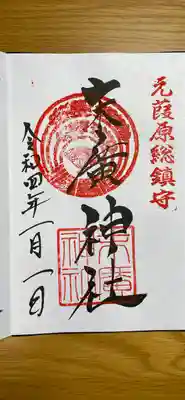 元葭原総鎮守
末廣神社
令和四年一月一日